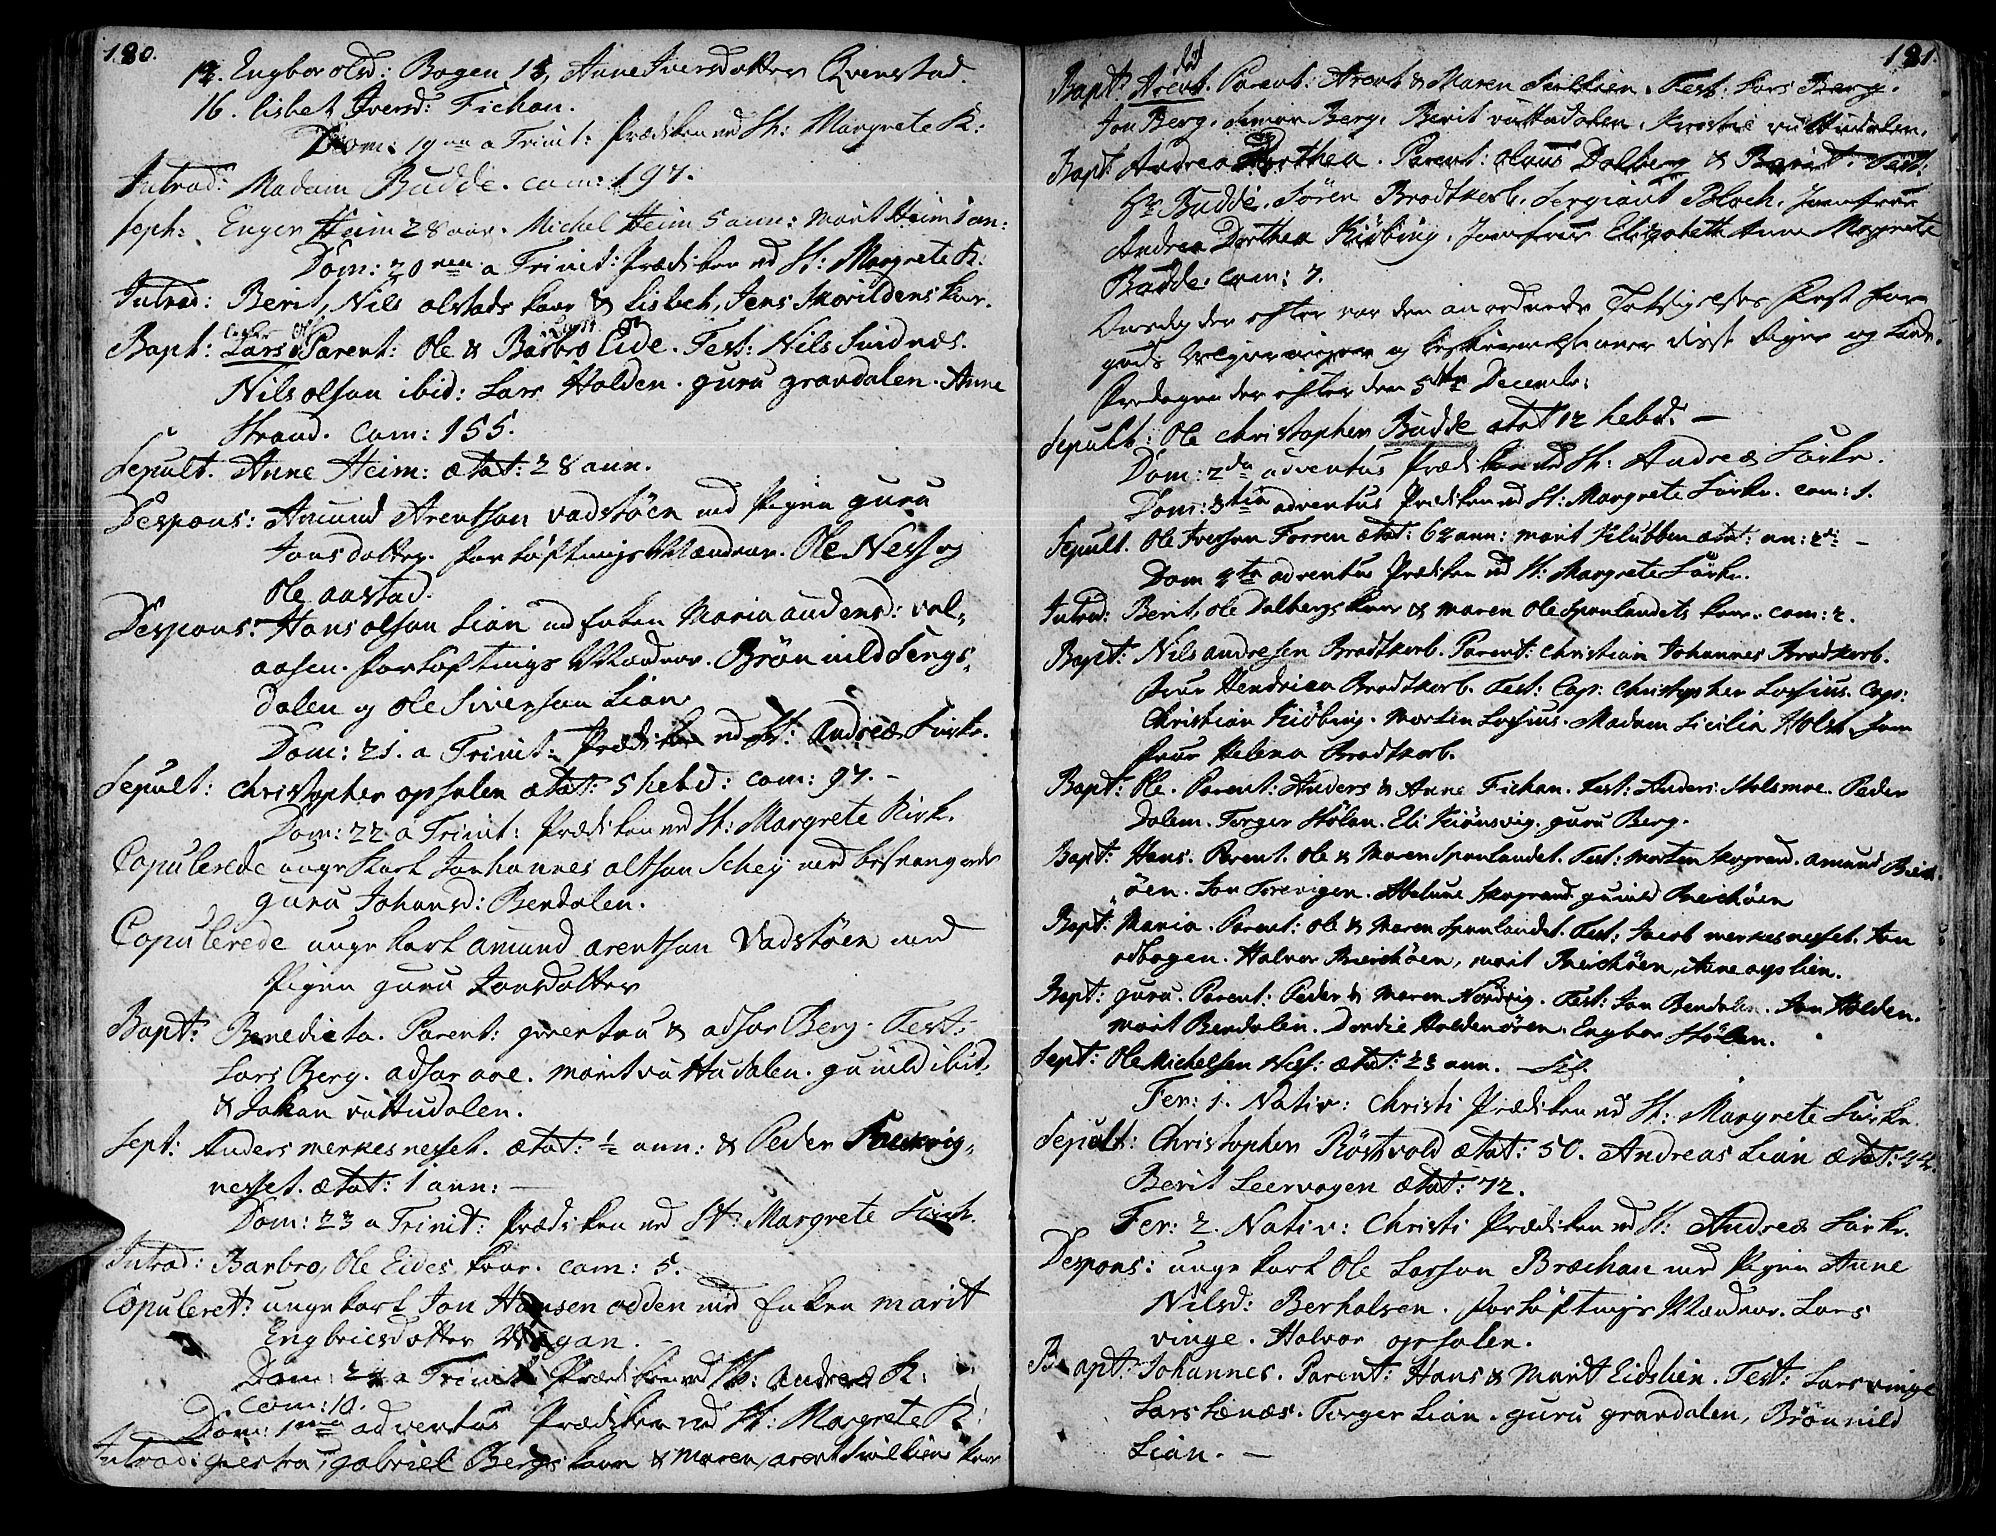 180.
Engbor olsd: Bogen 18, Anne Iversdatter Qvenstad.
16. lisbet Iversd: Fichan.
Dom: 19 a Trinit: Prædiken ved St: Margrete K:
Introd: Madam Budde. com: 197.
Seph: Enger Heim 28 aar. Michel Heim 5 ann: Marit Heim 1 an:
Dom: 20 a Trinit: Prædiken ved St: Margrete K:
Introd: Berit, Nils olstads kone & Lisbeth, Jens Skorildens kone.
Bapt: Lars Parent: Ole & Barbro Eide. Test: Nils Snidnes.
Nils olson ibid: Lars Holden. guru grandalen. Anne
Strand. Com: 155.
Sepult. Anne Heim: ætat: 28 ann.
Despons: Amund Arentson Vadstöen med Pigen guru
Jonsdatter. Forlöftnings Mændene. Ole Ness og
Ole aastad.
Despons: Hans olson Lian med Enken Maria audensd: val-
aasen. Forlöftnings Mændene. Brönnild Sengs-
dalen og Ole Siversson Lian
Dom: 21. a Trinit: Prædiken ved St: Andreæ Kirke.
Sepult: Christopher opsalen ætat: 5 hebd: com: 97. -
Dom: 22 a Trinit: Prædiken ved St: Margrete Kirk.
Copulerede unge karl Johannes altson Schey med besvangrede
guru Johansd: Bendalen.
Copulerede unge karl amund arentson Vadstöen med
Pigen guru Jonsdatter
Bapt: Benedicta. Parent: & Berg. Test:
Lars Berg. marit vuttudalen. gunild ibid.
& Johan vuttudalen.
Sept: Anders merkesnesset. ætat: ½ ann: & Peder
nesset. ætat: 1 ann: —
Dom: 23 a Trinit: Prædiken ved St: Margrete Kirk.
Introd: Barbro, Ole Eides kone. com: 5.
Copuleret: unge karl Jon Hansen odden med Enken marit
Engbrigsdatter Vaagan.
Dom: 24 a Trinit: Prædiken ved St: Andreæ K:
Com: 10.
Dom: 1 adventus Prædiken ved St: Margrete K:
Introd: giertru, gabriel Bergs kone & maren, arent Sislien kone
181.
Bapt: Arent. Parent: Arent & Maren. Test: Lars Berg.
Jon Berg. Simon Berg. Berit vuttudalen. vuttudalen.
Bapt: Andrea Dorthea. Parent: Olaus Dalberg & Berit. Test:
Hr Budde. Sören Brodtkorb. Sergiant Bloch. Jomfrue
Andrea Dorthea Kiöbing. Jomfrue Elizabeth Anne Magrete
Budde. com: 7.
Onsdag der efter var den anordnede Taksigelses Fest for
guds og over disse Riger og Lande.
Fredagen der efter den 5te Decembr:
Sepult: Ole Christopher Budde ætat 12 hebd. —
Dom: 2da adventus Prædiken ved St: Andreæ Kirke.
Dom: 3tia adventus Prædiken ved St: Margrete Kirke. com: 1.
Sepult. Ole Iversen Forren ætat: 62 ann: Marit Klubben ætat: an: —
Dom 4ta adventus Prædiken ved St: Margrete Kirke.
Introd: Berit, Ole Dalbergs kone & maren Ole Spanlandets kone. com: 2.
Bapt: Nils andresen Brodtkorb. Parent: Christian Johannes Brodtkorb.
Frue Hendrica Brodtkorb. Test: Cap: Christopher Lossius. Cap:
Christian Kiöbing. Morten Lossius. Madam Sicilia Holst. Jom
frue Helena Brodtkorb.
Bapt: Ole. Parent: Anders & Anne Fichan. Test: Anders Stolsmoe. Peder
Dalem. Torger Stölen. Eli Kiönsvig. guru Berg.
Bapt: Hans. Parent. Ole & Maren Spanlandet. Test: Morten Skogrand. Amund
öen. Jon. Skogrand. gunild
Bapt: Maria. Parent: Ole & Maren Spanlandet. Test: Jacob merkesnesset. Jon
odbogen. Halvor, marit, Anne opslien.
Bapt: guru. Parent: Peder & Maren Nordvig. Test: Jon Bendalen. Jon Holden.
marit Bendalen. Dordie Holdenören. Engbor Stölen.
Sept: Ole Michelsen Ness: ætat: 23 ann. —
Fer: 1. Nativ: Christi Prædiken ved St: Margrete Kirke.
Sepult: Christopher Röstvold ætat: 50. Andreas Lian ætat: 44.
Berit Leervogen ætat: 72.
Fer: 2. Nativ: Christi Prædiken ved St: Andreæ Kirke.
Despons: unge karl Ole Larson Bræchan med Pigen Anne
Nilsd: Berhalsen. Forlöftnings Mændene. Lars
vinge. Halvor opsalen.
Bapt: Johannes. Parent: Hans & Marit Eidslien. Test: Lars vinge
Lars Lenæs. Torger Lian. guru grandalen, Brönnild
Lian. —